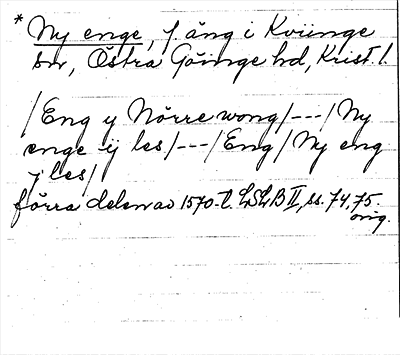 * Ny enge, f. äng i Kviinge
sn, Östra Göinge hd, Krist. l.
/Eng y Nörre wong/---/Ny
enge ÿ les/---/Eng/Ny eng
y les/
förra delen av 1570-t. LSLB II, ss. 74, 75.
orig.